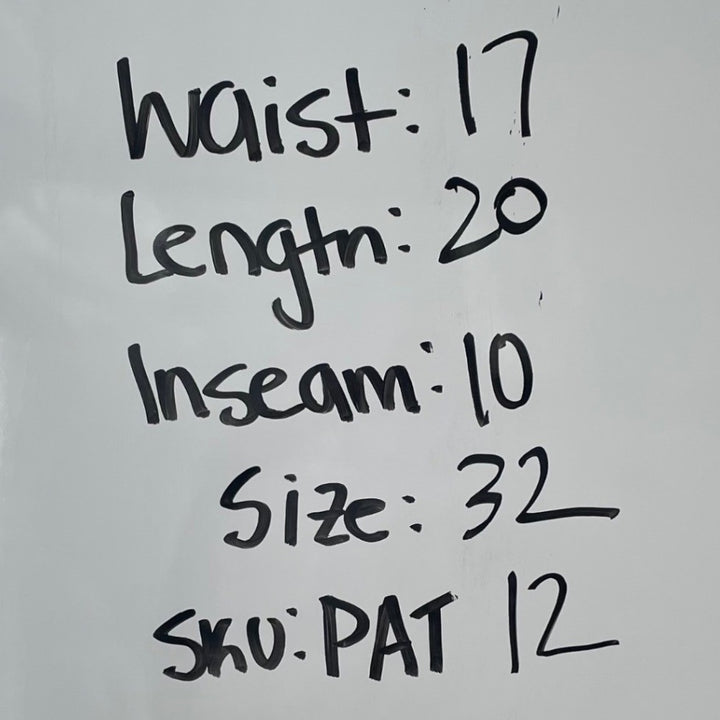 Waist: 17
Length: 20
Inseam: 10
Size: 32
SKU: PAT 12